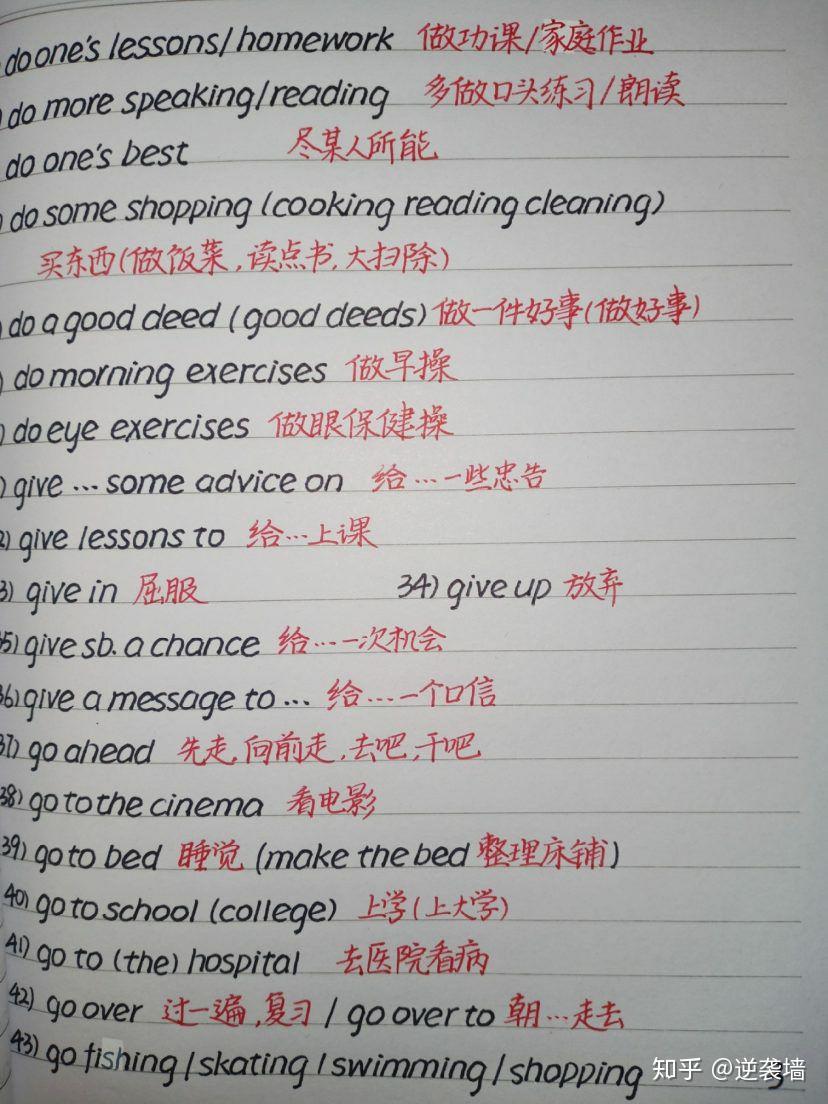 do one's lessons/homework 做功课/家庭作业
do more speaking/reading 多做口头练习/朗读
do one's best 尽某人所能
do some shopping (cooking reading cleaning)
买东西(做饭菜,读点书,大扫除)
do a good deed (good deeds) 做一件好事(做好事)
do morning exercises 做早操
do eye exercises 做眼保健操
give ... some advice on 给...一些忠告
2) give lessons to 给...上课
3) give in 屈服 34) give up 放弃
35) give sb. a chance 给...一次机会
36) give a message to ... 给...一个口信
37) go ahead 先走,向前走,去吧,干吧
38) go to the cinema 看电影
39) go to bed 睡觉 (make the bed 整理床铺)
40) go to school (college) 上学(上大学)
41) go to (the) hospital 去医院看病
42) go over 过一遍,复习 / go over to 朝...走去
43) go fishing / skating / swimming / shopping
知乎 @逆袭墙